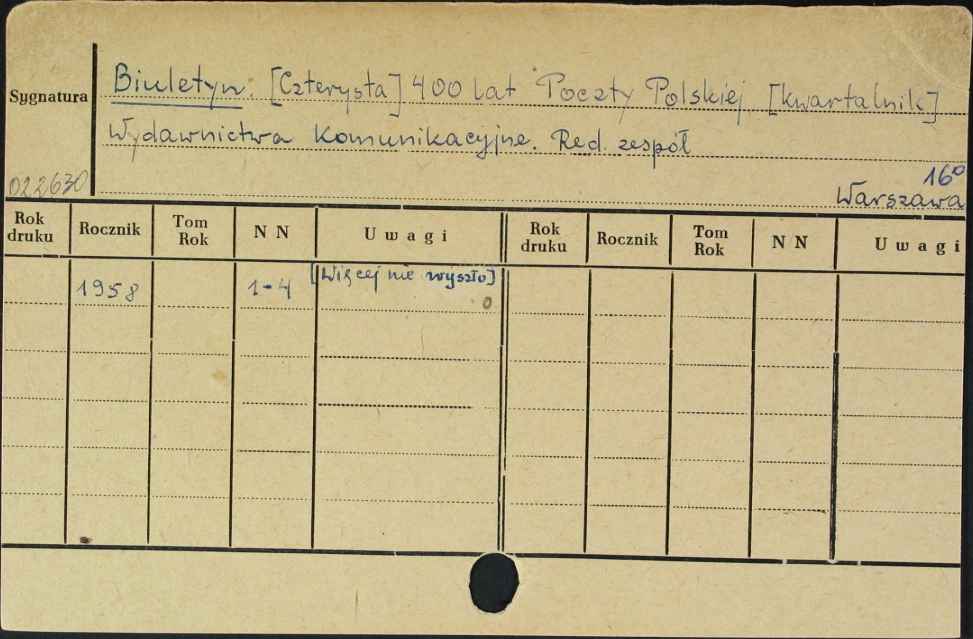 Sygnatura
Biuletyn. [Czterysta] 400 lat Poczty Polskiej [Kwartalnik]
Wydawnictwa Komunikacyjne. Red. zespół
16°
022630
Warszawa
Rok druku Rocznik Tom Rok N N Uwagi Rok druku Rocznik Tom Rok N N Uwagi
[Więcej nie wyszło]
1958 1-4
0